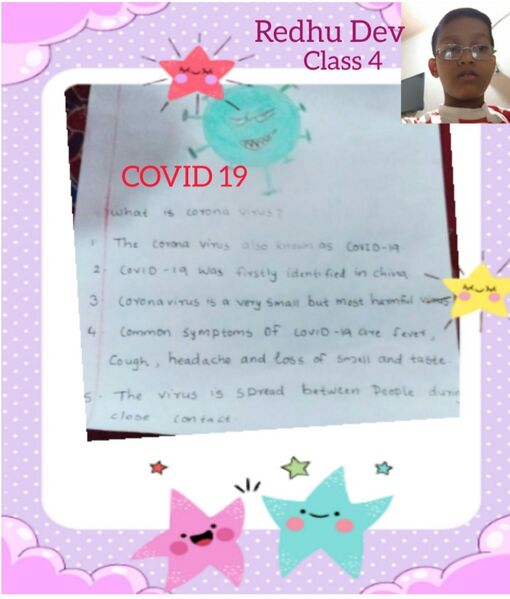 Redhu Dev
Class 4
COVID 19
What is corona virus?
1. The corona virus also known as COVID-19
2. COVID-19 was firstly identified in china
3. Coronavirus is a very small but most harmful virus
4. Common symptoms of COVID-19 are fever,
Cough, headache and loss of smell and taste.
5. The virus is spread between People during
close contact